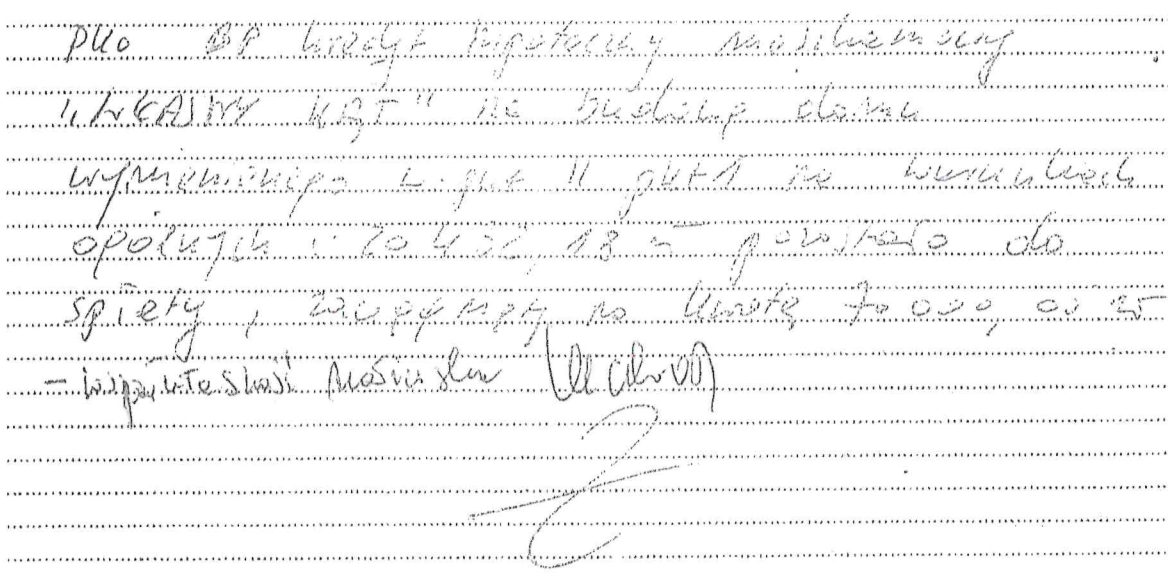 PKO BP kredyt hipoteczny mieszkaniowy
"WŁASNY KĄT" na budowę domu
wymienionego w pkt II pkt 1 na warunkach
ogólnych : 20 432,18 zł pozostało do
spłaty, zaciągnięty na kwotę 70 000,00 zł
- współwłasność małżeńska